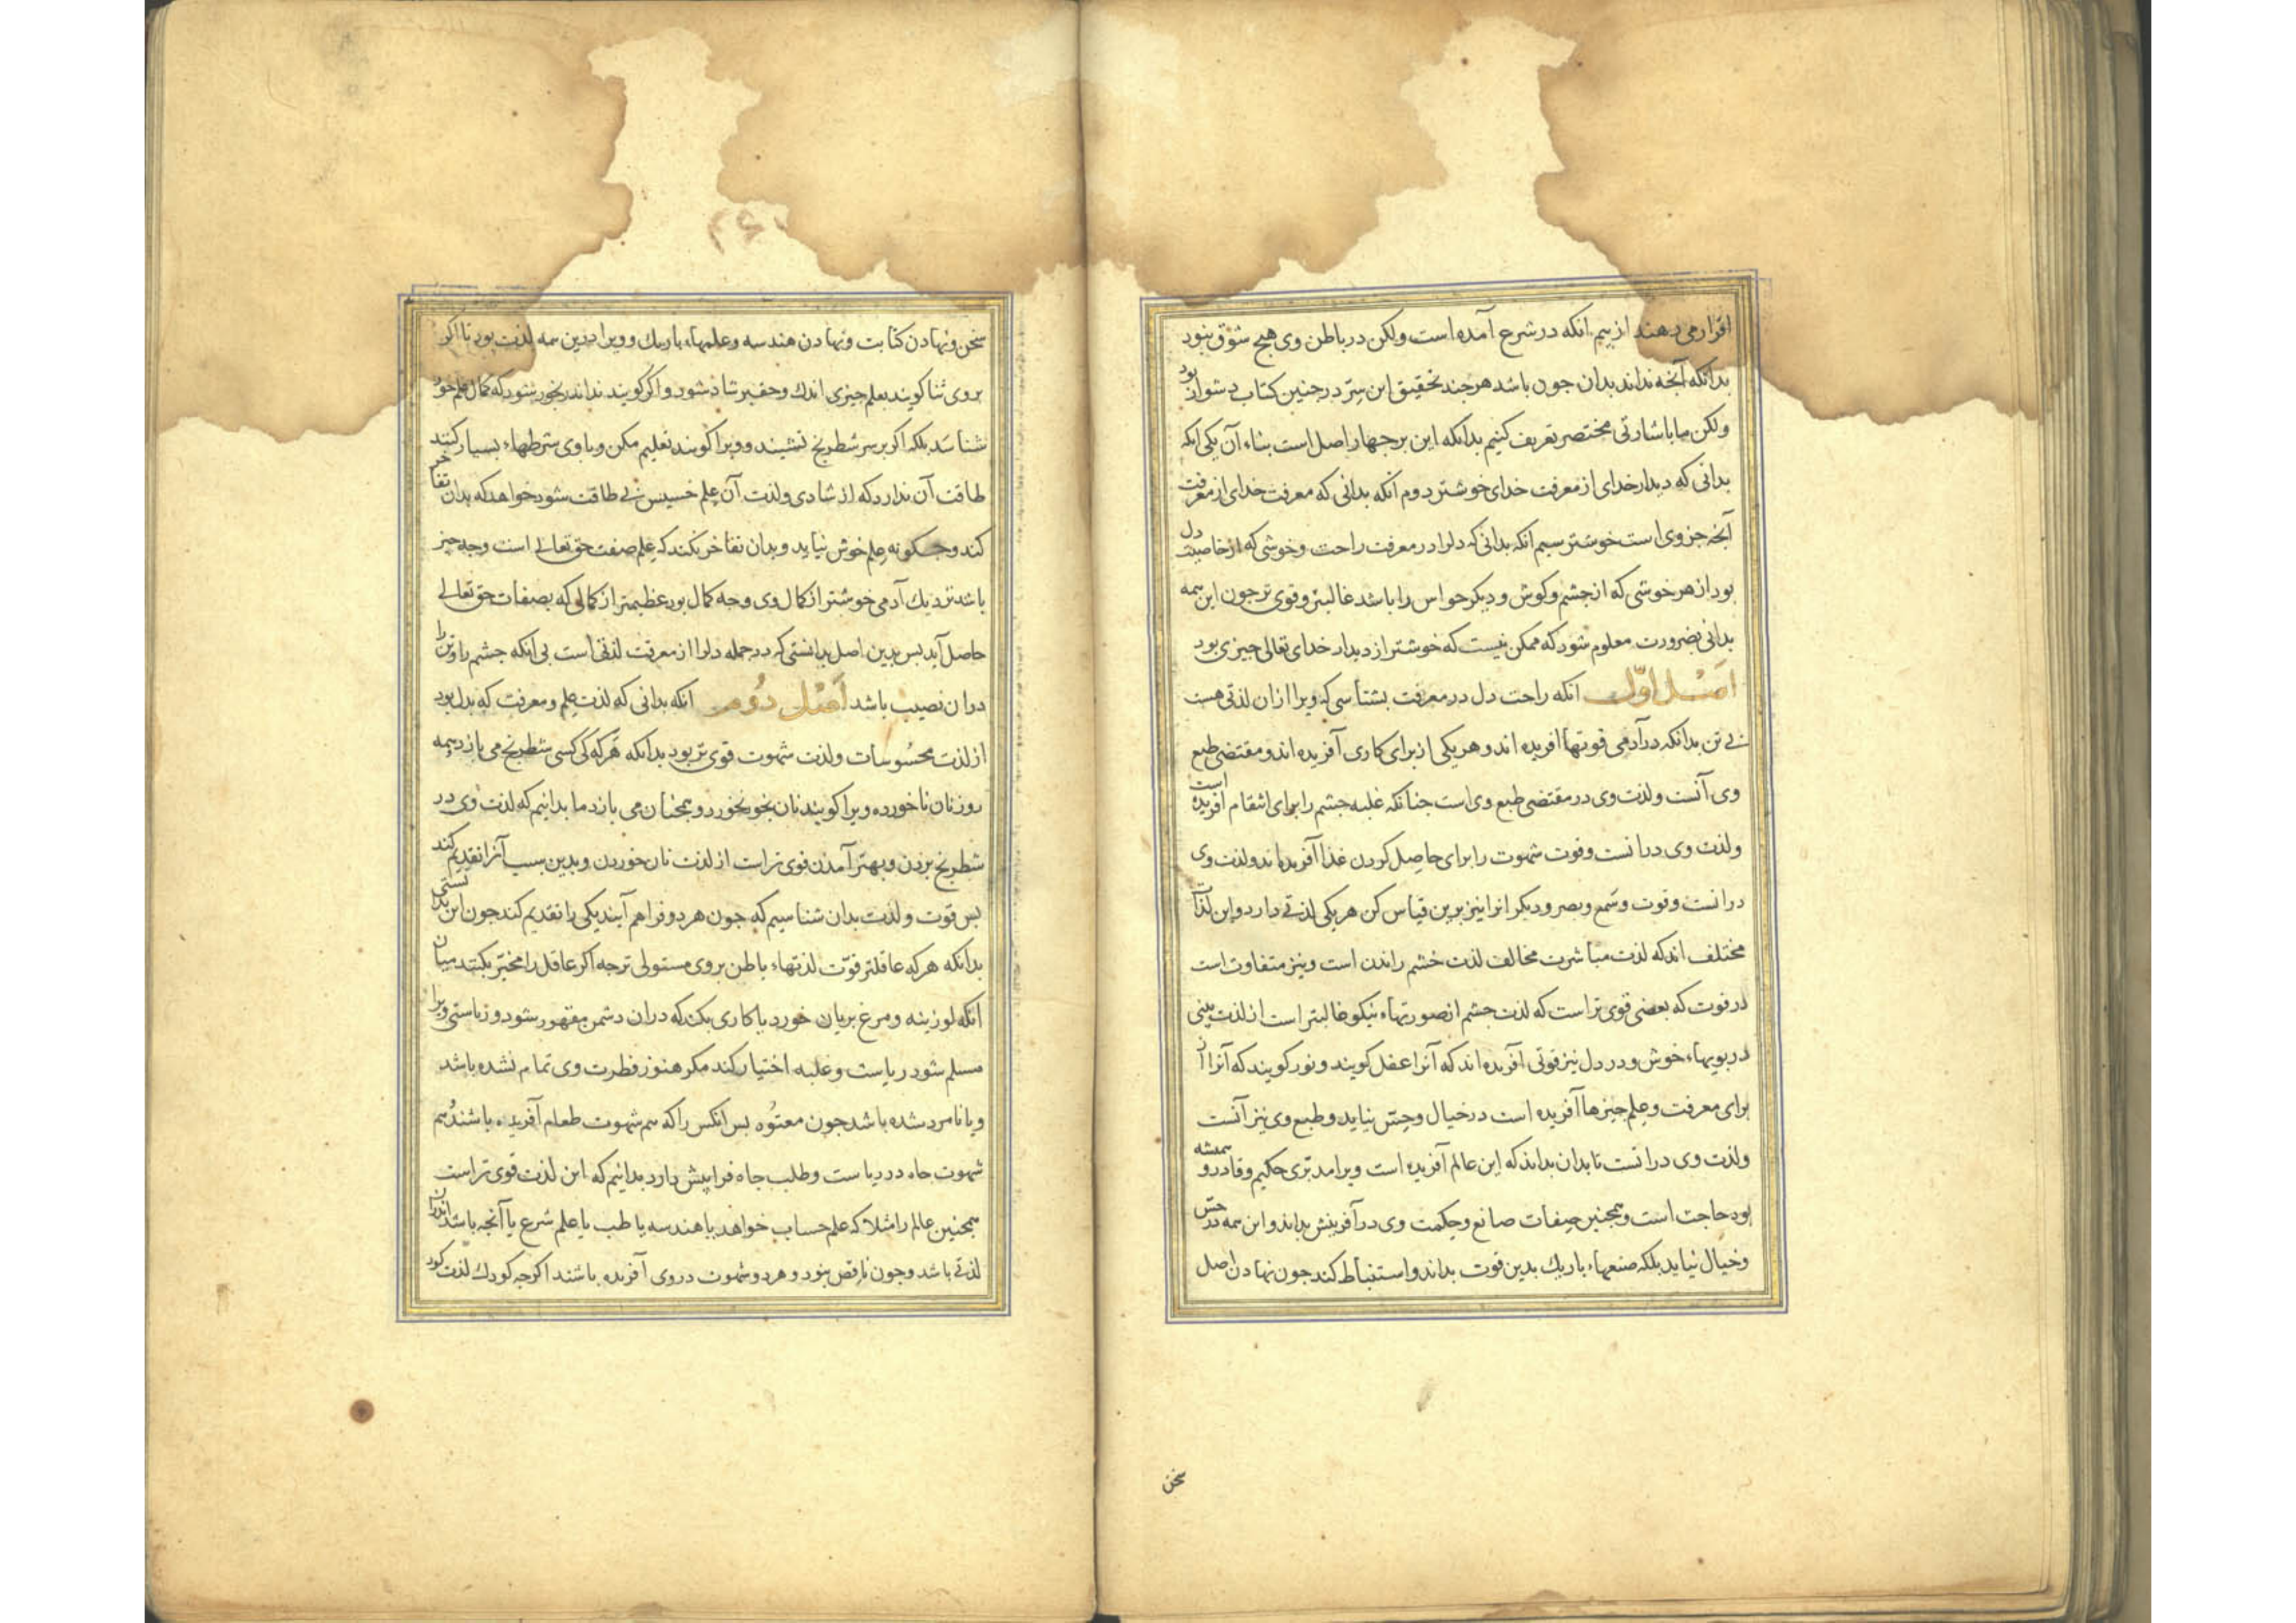 اقرار می دهند از بیم آنکه در شرع آمده است ولکن در باطن وی هیچ شوق نبود
بدانکه آنچه نداند بدان جون باشد هر جند تحقیق این سرّ در جنین کتاب دشوار بود
ولکن ما باشارتی مختصر تعریف کنیم بدانکه این بر جهار اصل است بناء آن یکی آنکه
بدانی که دیدار خدای از معرفت خدای خوشتر دوم آنکه بدانی که معرفت خدای از معرفت
آنچه جز وی است خوشتر سیم آنکه بدانی که دلرا در معرفت راحت و خوشی که از خاصیت دل
بود از هر خوشی که از جشم و کوش و دیکر حواس را باشد غالبتر و قوی تر جون این همه
بدانی بضرورت معلوم شود که ممکن نیست که خوشتر از دیدار خدای تعالی جیزی بود
اصل اوّل آنکه راحت دل در معرفت بشناسی که ویرا ازان لذتی هست
بی تن بدانکه در آدمی قوتها آفریده اند و هر یکی از برای کاری آفریده اند و مقتضی طبع
وی آنست ولذت وی در مقتضی طبع وی است جنانکه غلبه جشم را برای انتقام آفریده است
ولذت وی درانست وقوت شهوت را برای حاصل کردن غذا آفریده اند ولذت وی
درانست وقوت وسمع وبصر ودیکر انرا نیز برین قیاس کن هر یکی لذتی دارد واین لذّتها
مختلف اند که لذت مباشرت مخالف لذت خشم راندن است ونیز متفاوت است
در قوت که بعضی قوی تر است که لذت جشم از صورتهاء نیکو غالبتر است از لذت بینی
در بویهاء خوش و در دل نیز قوتی آفریده اند که آنرا عقل کویند ونور کویند که آنرا از
برای معرفت وعلم جیزها آفریده است در خیال وحسّ نیاید وطبع وی نیز آنست
ولذت وی درانست تا بدان بداند که این عالم آفریده است ویرا مدبّری حکیم وقادر و همیشه
بود حاجت است وهمجنین صفات صانع وحکمت وی در آفرینش بداند واین همه در حسّ
وخیال نیاید بلکه صنعهاء باریك بدین قوت بداند واستنباط کند جون نهادن اصل
سخن
سخن ونهادن کتابت ونهادن هندسه وعلمهاء باریك وویرا درین همه لذت بود تا اکر
بروی ثنا کویند بعلم جیزی اندك وحقیر شاد شود واکر کویند نداند رنجور شود که کمال علم خود
شناسد بلکه اکر بر سر شطرنج نشیند وویرا کویند تعلیم مکن وباوی شرطهاء بسیار کنند
طاقت آن ندارد که از شادی ولذت آن علم خسیس بی طاقت شود خواهد که بدان تفاخر
کند وجکونه علم خوش نیاید وبدان تفاخر نکند که علم صفت حق تعالی است وجه جیز
باشد نزدیك آدمی خوشتر از کمال وی وجه کمال بود عظیمتر از کمالی که بصفات حق تعالی
حاصل آید بس بدین اصل بدانستی که در جمله دلرا از معرفت لذتی است بی آنکه جشم را وتن را
دران نصیب باشد اصل دوم آنکه بدانی که لذت علم ومعرفت که بدل بود
از لذت محسوسات ولذت شهوت قوی تر بود بدانکه هرکه کی کسی شطرنج می بازد همه
روز نان ناخورده ویرا کویند نان بخور نخورد وهمجنان می بازد ما بدانیم که لذت وی در
شطرنج بردن وبهتر آمدن قوی تر است از لذت نان خوردن وبدین سبب آنرا تقدیم کند
بس قوت ولذت بدان شناسیم که جون هر دو فراهم آیند یکی را تقدیم کند جون این بدانستی
بدانکه هرکه عاقلتر قوّت لذتهاء باطن بروی مستولی تر جه اکر عاقل را مخیّر بکنند میان
آنکه لوزینه ومرغ بریان خورد یا کاری بکند که دران دشمن مقهور شود وریاستی ویرا
مسلم شود ریاست وغلبه اختیار کند مکر هنوز فطرت وی تمام نشده باشد
ویا نامرد شده باشد جون معتوه بس آنکس را که هم شهوت طعام آفریده باشند هم
شهوت جاه در ریاست وطلب جاه فرا پیش دارد بدانیم که این لذت قوی تر است
همجنین عالم را مثلا که علم حساب خواهد یا هندسه یا طب یا علم شرع یا آنجه باشد اندران
لذتی باشد وجون ناقص نبود وهر دو شهوت دروی آفریده باشند اکرجه کودك لذت کود